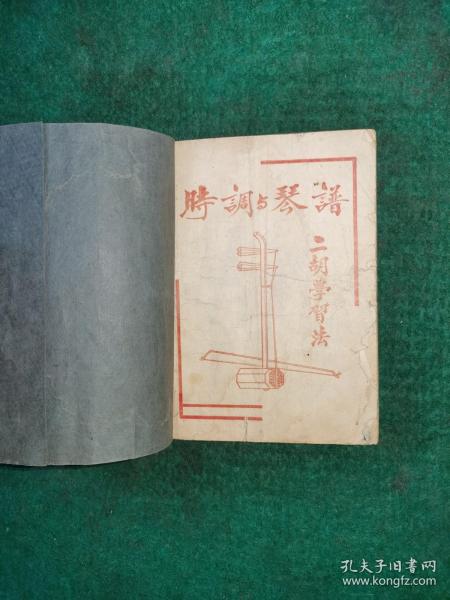 時調与琴譜
二胡學習法
孔夫子旧书网
www.kongfz.com